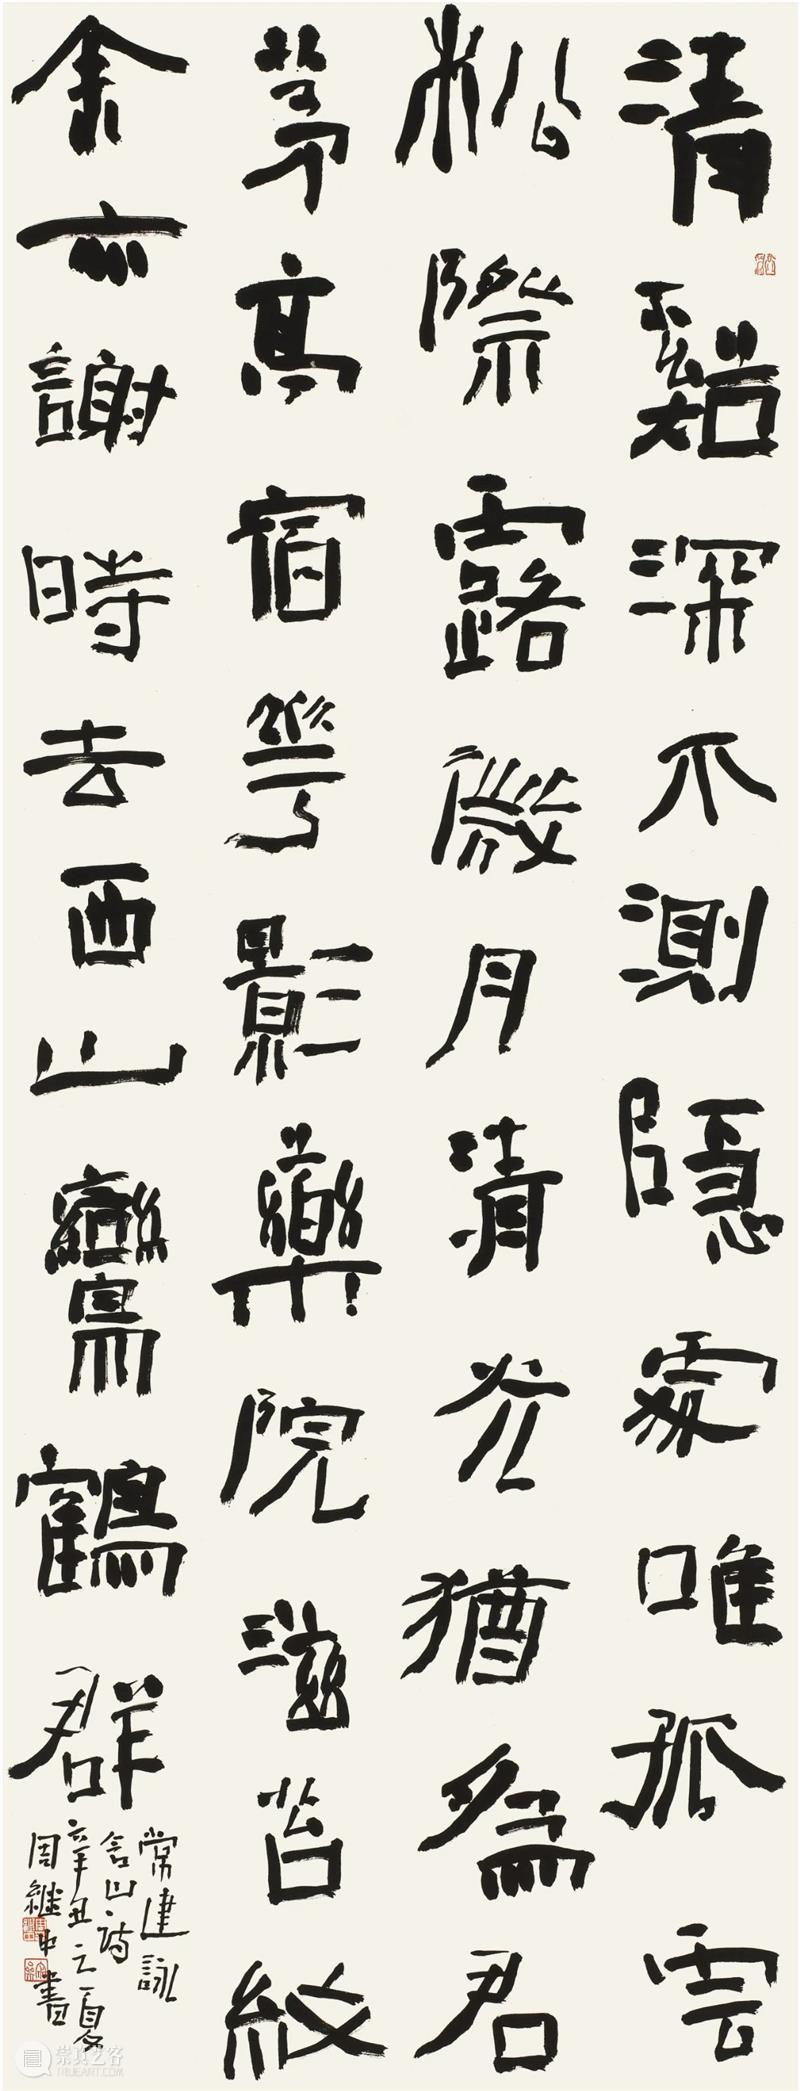 清谿深不測隱處唯孤雲
松際露微月清光猶爲君
茅亭宿華影藥院滋苔紋
余亦謝時去西山鸞鶴群
常建詠
含山詩
辛丑之夏
周繼中書
崇真艺客
TRUEART.COM